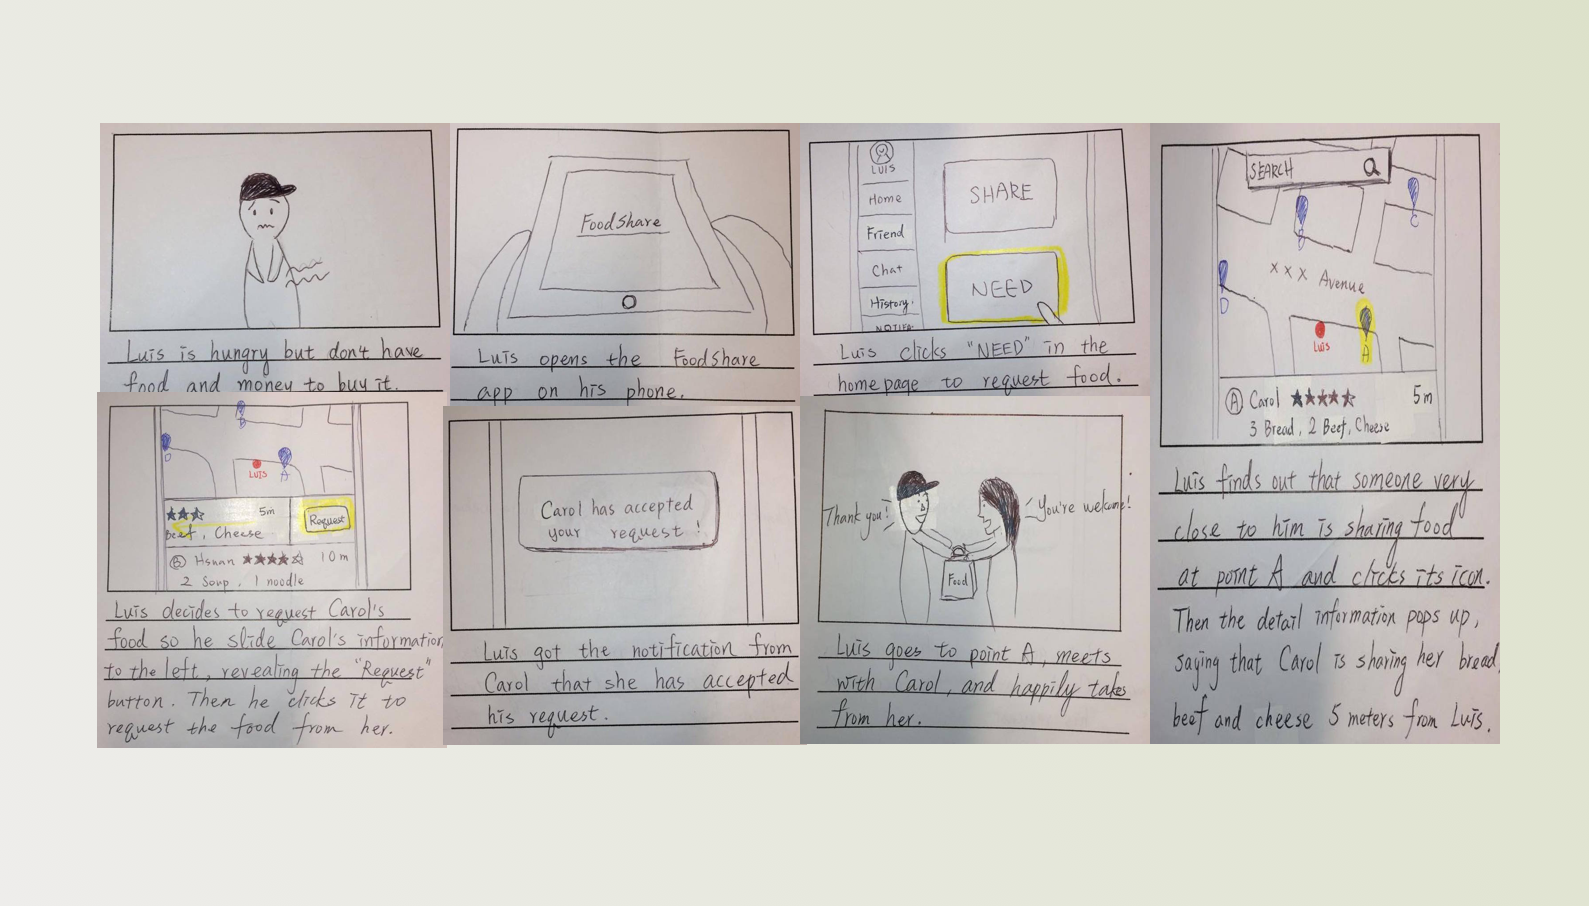 Luis is hungry but don't have
food and money to buy it.
FoodShare
Luis opens the FoodShare
app on his phone.
LUIS
Home
Friend
Chat
History
NOTIFA
SHARE
NEED
Luis clicks "NEED" in the
homepage to request food.
SEARCH
C
B
D
x x x Avenue
Luis
A
A Carol 5m
3 Bread, 2 Beef, Cheese
Luis finds out that someone very
close to him is sharing food
at point A and clicks its icon.
Then the detail information pops up,
saying that Carol is sharing her bread,
beef and cheese 5 meters from Luis.
B
D
LUIS
A
5m
Request
beef, Cheese
B Hsnan 10m
2 Soup, 1 noodle
Luis decides to request Carol's
food so he slide Carol's information
to the left, revealing the "Request"
button. Then he clicks it to
request the food from her.
Carol has accepted
your request !
Luis got the notification from
Carol that she has accepted
his request.
Thank you!
You're welcome!
Food
Luis goes to point A, meets
with Carol, and happily takes
from her.